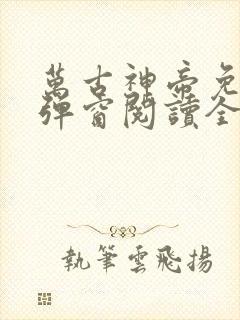 萬古神帝免
彈窗閱讀全
執筆雲飛揚